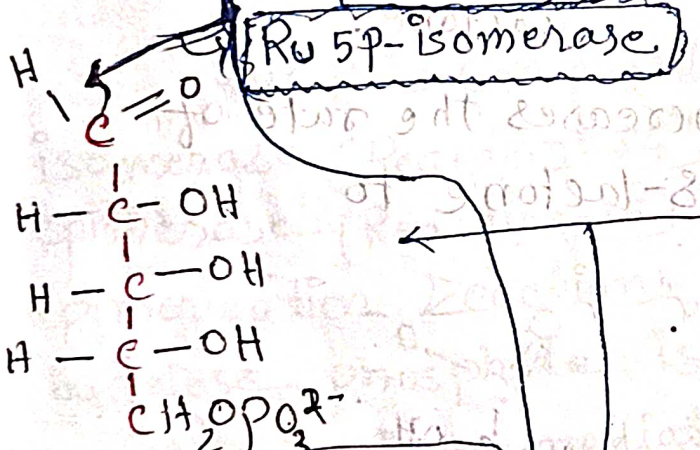 Ru 5p-isomerase
H
C
O
H - C - OH
H - C - OH
H - C - OH
CH₂OPO₃²⁻